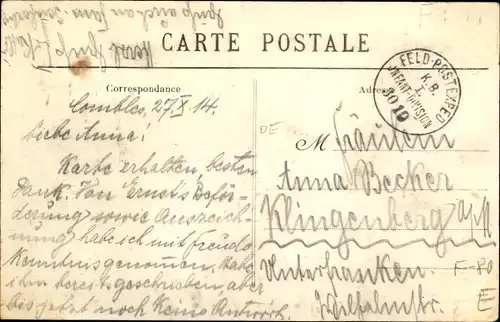 CARTE POSTALE
Correspondance
Adresse
FELD-POSTEXPED
K.B.
I.
INFANT.-DIVISION
3010
Combles, 27/X. 14.
Liebe Anna!
Karte erhalten, besten
Dank. Von Ernst's Beför-
derung sowie Auszeich-
nung habe ich mit Freude
Kenntnis genommen, habe
ihm bereits geschrieben, aber
bis jetzt noch keine Antwort.
DE
M Fräulein
Anna Becker
Klingenberg a/M
Unterfranken.
Wilhelmstr.
F-80
E